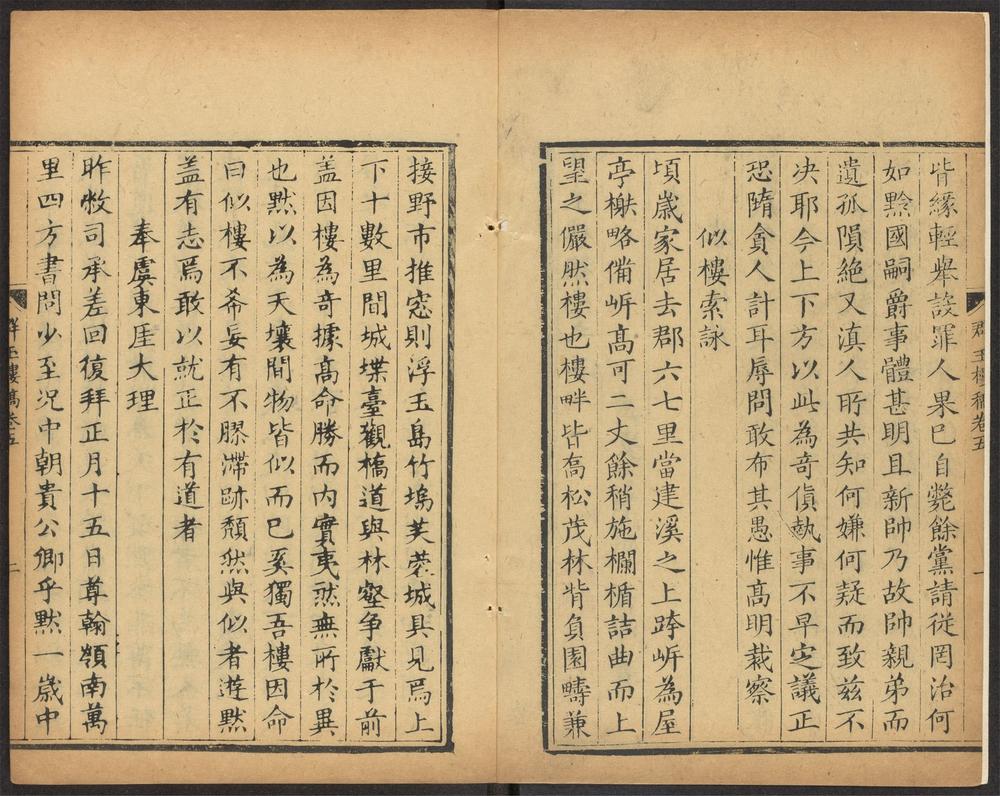 皆緣輕舉設罪人果已自斃餘黨請從罔治何
如黔國嗣爵事體甚明且新帥乃故帥親弟而
遺孤隕絶又滇人所共知何嫌何疑而致兹不
决耶今上下方以此為奇貨執事不早定議正
恐隋貪人計耳辱問敢布其愚惟髙明裁察
似樓索詠
頃歲家居去郡六七里當建溪之上跨岍為屋
亭榭略備岍髙可二丈餘稍施欄楯詰曲而上
望之儼然樓也樓畔皆喬松茂林背負園疇兼
郡玉樓稿卷五
一
接野市推窓則浮玉島竹塢芙蓉城具見焉上
下十數里間城堞臺觀橋道與林壑争獻于前
盖因樓為竒據髙命勝而内實夷然無所於異
也黙以為天壤間物皆似而已奚獨吾樓因命
曰似樓不希妄有不膠滯跡頽然與似者遊黙
盖有志焉敢以就正於有道者
奉虞東厓大理
昨敝司承差回復拜正月十五日尊翰嶺南萬
里四方書問少至况中朝貴公卿乎黙一歲中
羣玉樓稿卷五
二